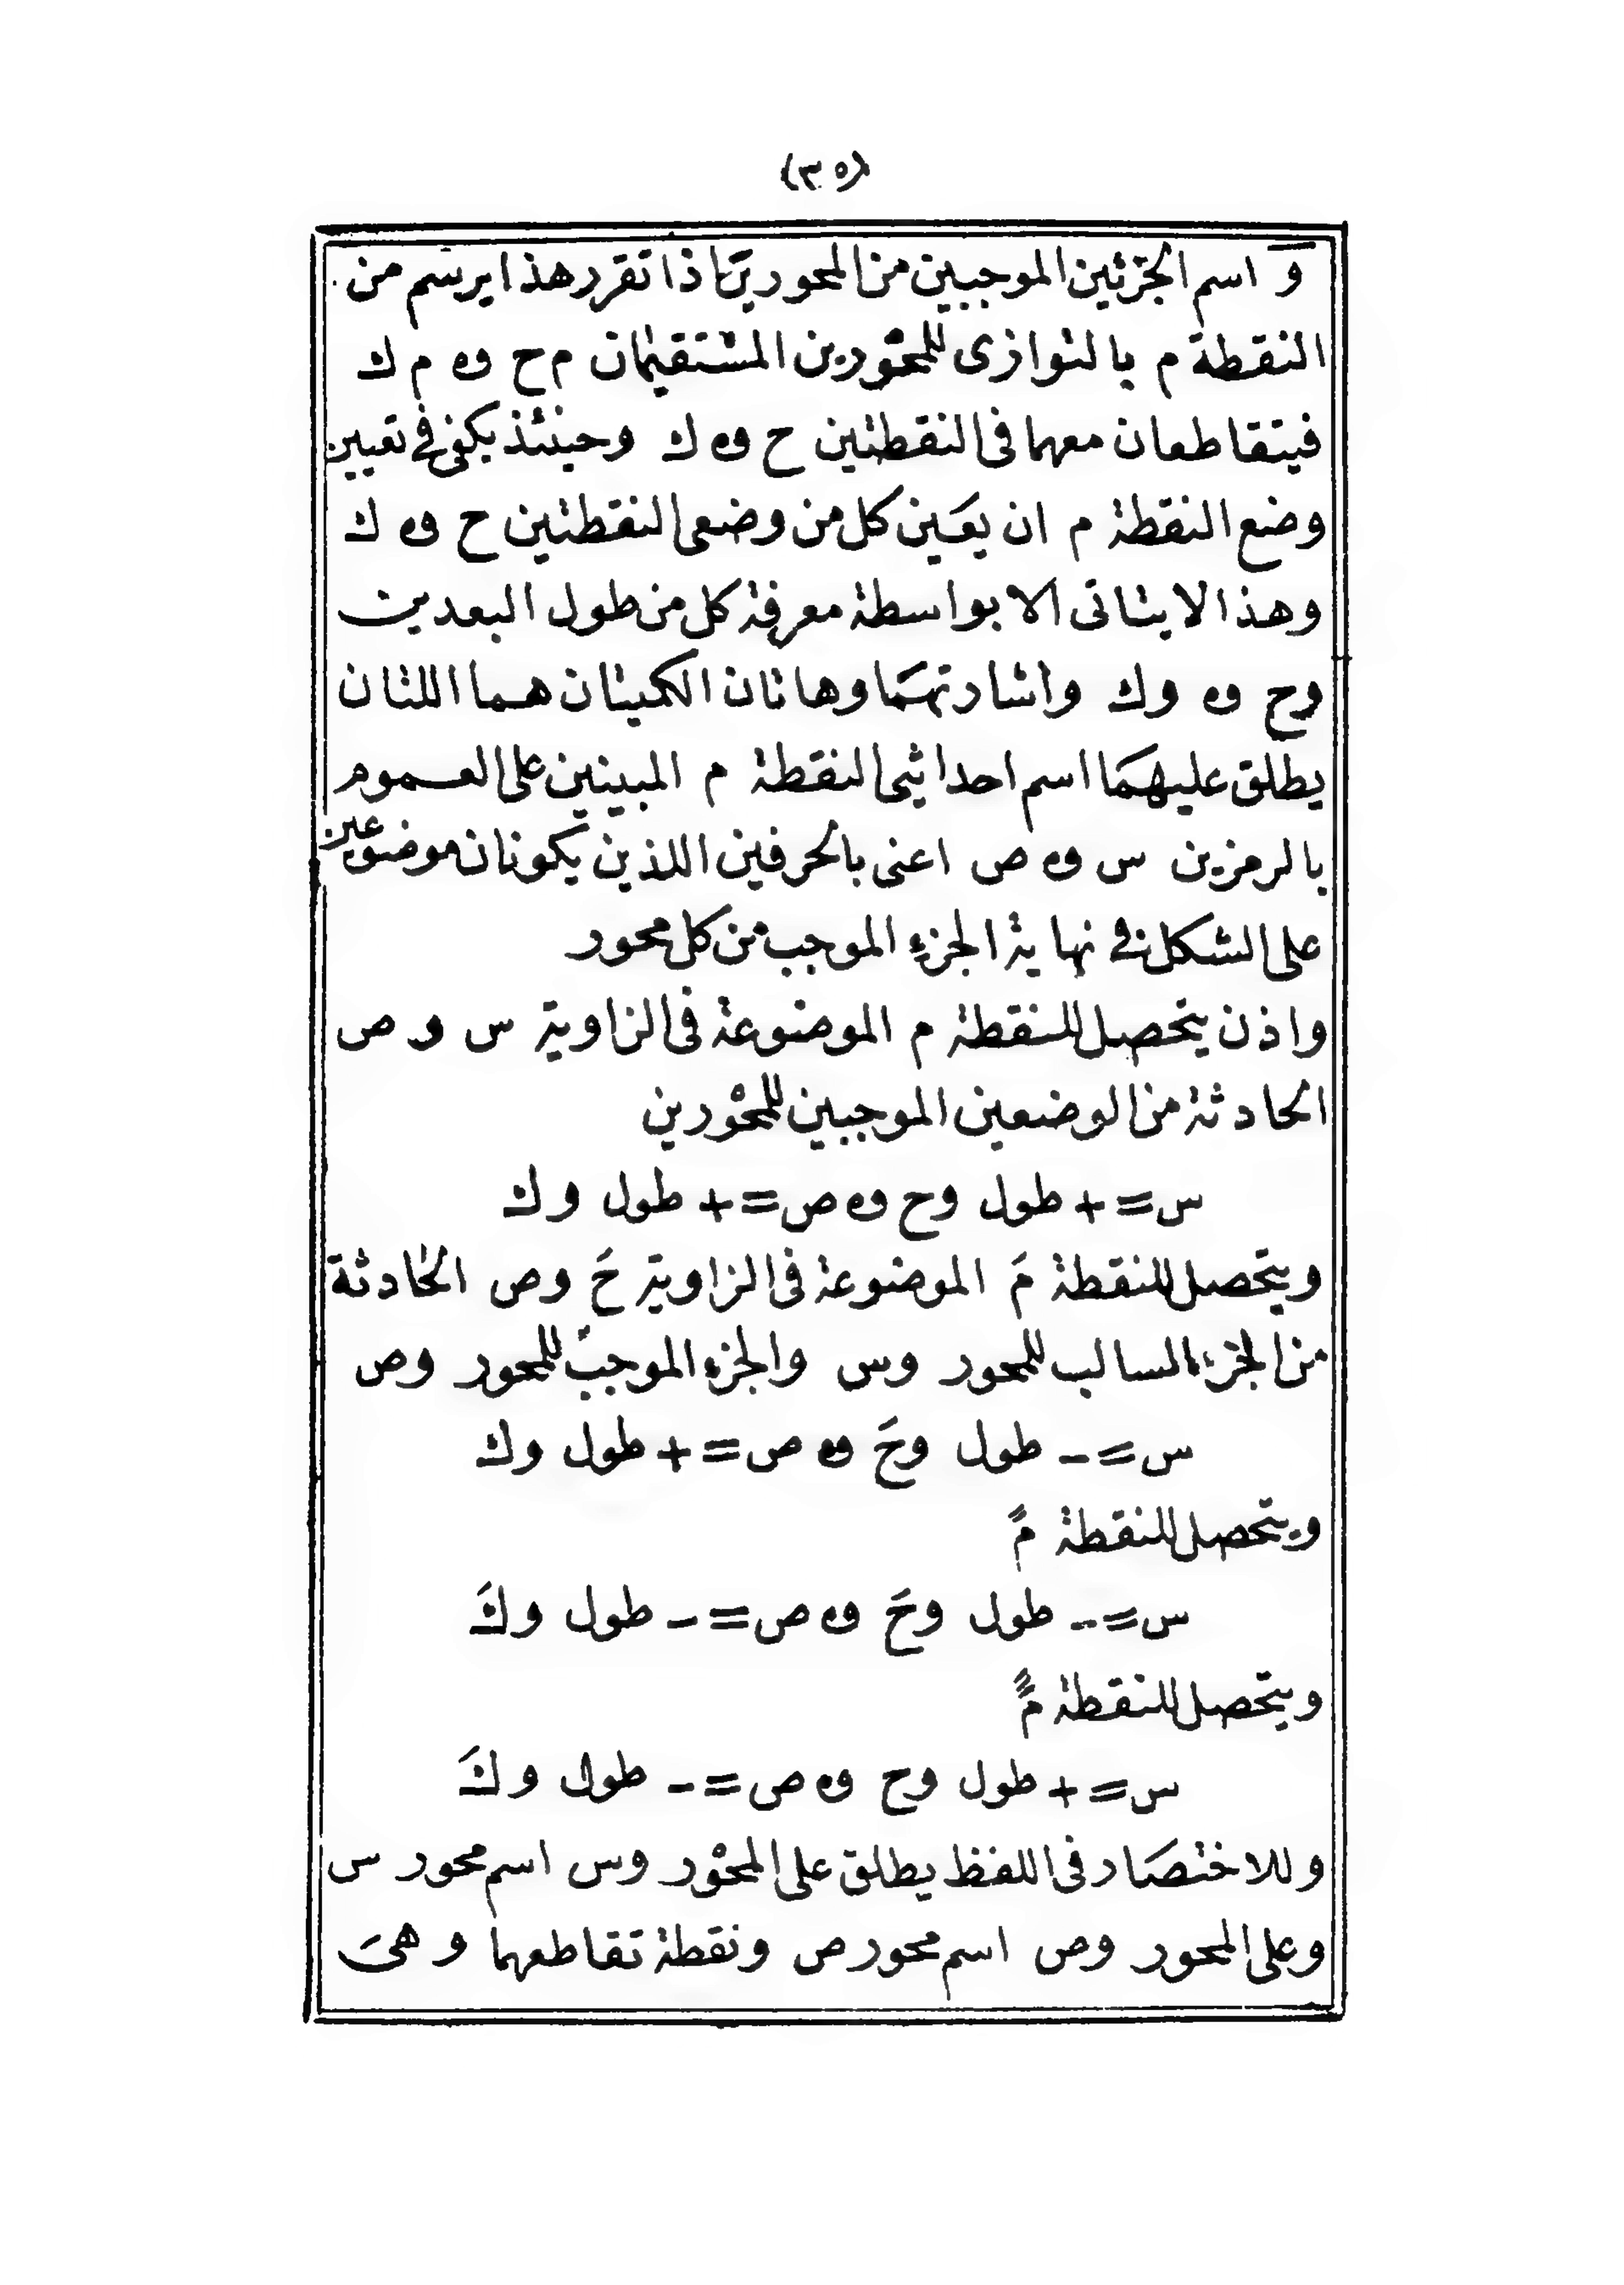 (٣٥)
و اسم الجزئين الموجبين من المحورين اذا تقرر هذا يرسم من
النقطة م بالتوازى للمحورين المستقيمان م ح و م ك
فيتقاطعان معهما فى النقطتين ح و ك وحينئذ يكفى فى تعيين
وضع النقطة م ان يعين كل من وضعى النقطتين ح و ك
وهذا لا يتاتى الا بواسطة معرفة كل من طول البعدين
وح و وك واشارتهما وهاتان الكميتان هما اللتان
يطلق عليهما اسم احداثيى النقطة م المبينين على العموم
بالرمزين س و ص اعنى بالحرفين اللذين يكونان موضوعين
على الشكل فى نهاية الجزء الموجب من كل محور
واذن يتحصل للنقطة م الموضوعة فى الزاوية س و ص
الحادثة من الوضعين الموجبين للمحورين
س = + طول وح و ص = + طول وك
ويتحصل للنقطة مَ الموضوعة فى الزاوية حَ وص الحادثة
من الجزء السالب للمحور وس والجزء الموجب للمحور وص
س = - طول وحَ و ص = + طول وك
ويتحصل للنقطة مً
س = - طول وحَ و ص = - طول وكَ
ويتحصل للنقطة مًَ
س = + طول وح و ص = - طول وكَ
وللاختصار فى اللفظ يطلق على المحور وس اسم محور س
وعلى المحور وص اسم محور ص ونقطة تقاطعهما و هى